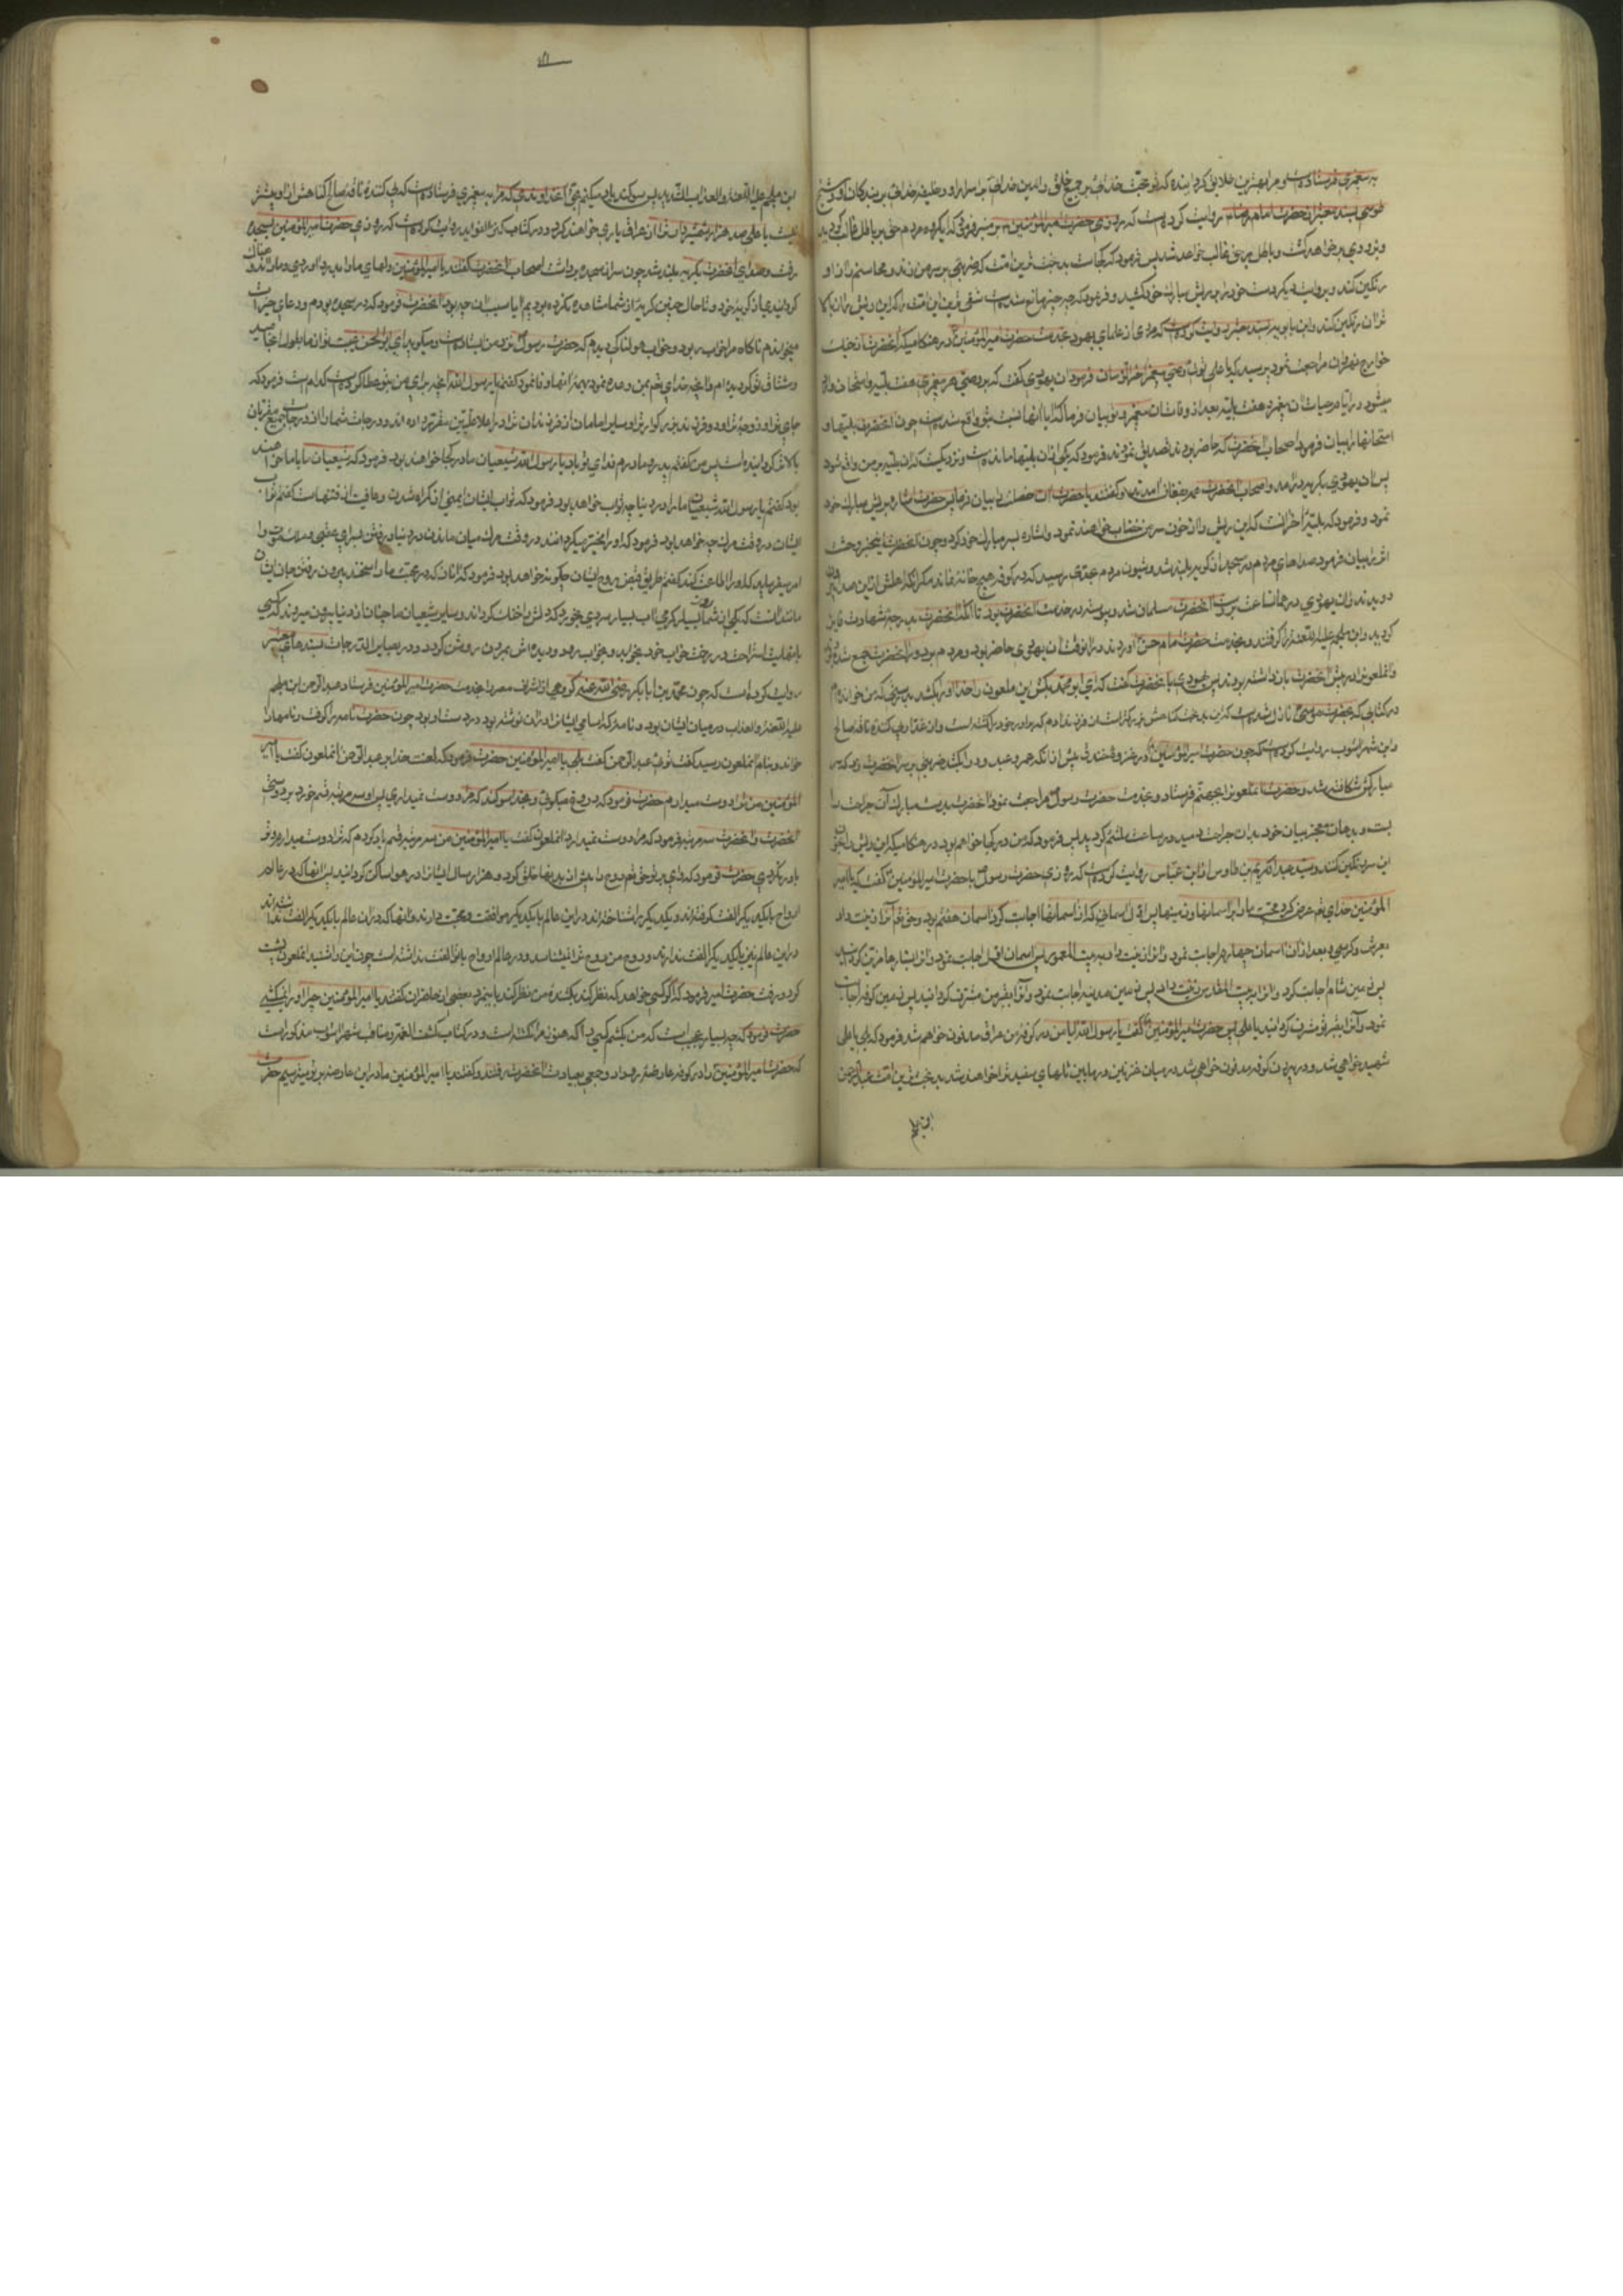 به پیغمبری فرستاده است و مرا بهترین خلایق گردانیده که تو حجت خدائی بر جمیع خلق و امین خدائی بر اسرار او و خلیفه خدائی بر بندگان او و شیخ
طوسی بسند معتبر از حضرت امام رضا روایت کرده است که روزی حضرت امیرالمؤمنین بر منبر فرمود که ایگروه مردم حق بر باطل غالب گردید
و بزودی بر خواهد گشت و باطل بر حق غالب خواهد شد پس فرمود که کجاست بدبخت ترین امت که ضربتی بر سر من زند و محاسنم را از او
رنگین کند و بروایت دیگر دست خود را بر ریش مبارک خود کشید و فرمود که چه چیز مانع شده است شقی ترین این امت را که این ریش را از بالا
تر از آن رنگین کند و ابن بابویه بسند معتبر روایت کرده است که مردی از علمای یهود بخدمت حضرت امیرالمؤمنین در هنگامیکه آنحضرت از جنگ
خوارج نهروان مراجعت نمود پرسید که یا علی توئی وصی پیغمبر آخر الزمان فرمود آن یهودی گفت که بر وصی هر پیغمبری هفت بلیه و امتحان واقع
میشود در ایام حیات آن پیغمبر و هفت بلیه بعد از وفات آن پیغمبر تو بیان فرما که آیا آنها نسبت بتو واقع شده است چون آنحضرت بلیتها و
امتحانها را بیان فرمود اصحاب آنحضرت که حاضر بودند تصدیق نمودند فرمود که یکی از آن بلیتها مانده است و نزدیکست که آن بلیه بر من واقع شود
پس آن یهودی بگریه درآمد و اصحاب آنحضرت همه بفغان آمدند و گفتند یا حضرت آن خصلت را بیان فرما پس حضرت اشاره بریش مبارک خود
نمود و فرمود که بلیه آخر آنست که این ریش را از خون سر من خضاب خواهند نمود و اشاره بسر مبارک خود کرد و چون آنحضرت این خبر وحشت
اثر را بیان فرمود صداهای مردم در مسجد از گریه بلند شد و شیون مردم بحدی رسید که در کوفه هیچ خانه نماند مگر آنکه اهلش از این صدا بیرون
دویدند و آن یهودی در همان ساعت بر دست آنحضرت مسلمان شد و پیوسته در خدمت آنحضرت بود تا آنکه آنحضرت بدرجه شهادت فایز
گردید و ابن ملجم علیه اللعنه را گرفتند و بخدمت حضرت امام حسن آوردند در آنوقت آن یهودی حاضر بود و مردم بر دور آنحضرت جمع شده بودند
و آنملعونرا در پیش آنحضرت باز داشته بودند پس یهودی با آنحضرت گفت که ای ابو محمد بکش این ملعون را خدا او را بکشد بدرستی که من خوانده ام
در کتابی که بحضرت موسی نازل شده است که این بدبخت گناهش بزرگتر است از فرزند آدم که برادر خود را کشته است و از قدار پی کننده ناقه صالح
و ابن شهر آشوب روایت کرده است که چون حضرت امیرالمؤمنین در غزوه خندق پیش از آنکه عمرو عبد ود را بکشد ضربتی بر سر آنحضرت زد که سر
مبارکش شکافته شد و حضرت آنملعونرا بجهنم فرستاد و بخدمت حضرت رسول مراجعت نمود آنحضرت بدست مبارک آن جراحت را
بست و بدهان معجز بیان خود بدان جراحت دمید در ساعت ملتئم گردید پس فرمود که من در کجا خواهم بود در هنگامیکه این ریش را از خون
این سر رنگین کنند و سید عبدالکریم بن طاوس از ابن عباس روایت کرده است که روزی حضرت رسول با حضرت امیرالمؤمنین گفت که یا امیر
المؤمنین خدای تع عرض کرد محبت ما را بر آسمانها و زمینها پس اول آسمانی که از آسمانها اجابت کرد آسمان هفتم بود و حق تع آنرا زینت داد
بعرش و کرسی و بعد از آن آسمان چهارم اجابت نمود و آنرا زینت داد ببیت المعمور پس آسمان اول اجابت نمود و آنرا بستارها مزین گردانید
پس زمین شام اجابت کرد و آنرا ببیت المقدس زینت داد پس زمین مدینه اجابت نمود و آنرا بقبر من مشرف گردانید پس زمین کوفه اجابت
نمود و آنرا بقبر تو مشرف گردانید یا علی پس حضرت امیرالمؤمنین گفت یا رسول الله آیا من در کوفه زمین عراق مدفون خواهم شد فرمود که بلی یا علی
شهید خواهی شد و در بیرون کوفه مدفون خواهی شد در میان غریین و در مابین تلهای سفید ترا خواهند شد بدبخت ترین امت عبدالرحمن
ابن ملجم
ابن ملجم علیه اللعنه و العذاب الشدید پس سوگند یاد میکنم بحق آنخداوندی که مرا به پیغمبری فرستاده است که پی کننده ناقه صالح گناهش از او بیشتر
نیست یا علی صد هزار شمشیر از عراق یاری خواهند کرد و در کتاب کنز الفواید روایت کرده است که روزی حضرت امیرالمؤمنین بسجده
رفت و صدای آنحضرت بگریه بلند شد چون سر از سجده برداشت اصحاب آنحضرت گفتند یا امیرالمؤمنین دلهای ما را بدرد آوردی و ما را اندوهناک
گردانیدی از گریه خود و تا حال چنین گریه از شما مشاهده نکرده بودیم آیا سبب آن چه بود آنحضرت فرمود که در سجده بودم و دعای خیرات
میخواندم ناگاه مرا خواب ربود و خواب هولناکی دیدم که حضرت رسول نزد من ایستاده است و میگوید ای ابوالحسن غیبت تو از ما بطول انجامید
و مشتاق تو گردیده ام و آنچه خدای تع بمن وعده نموده بود از تو وفا نمود گفتم یا رسول الله آنچه برای من بتو عطا کرده است کدام است فرمود که
جای ترا و زوجه ترا و دو فرزند بزرگوار ترا و سایر امامان از فرزندان ترا در اعلا علیین مقرر داده اند و درجات شما را از درجات جمیع مقربان
بالاتر گردانیده است پس من گفتم پدرم و مادرم فدای تو باد یا رسول الله شیعیان ما در کجا خواهند بود فرمود که شیعیان ما با ما خواهند
بود گفتم یا رسول الله شیعیان ما را در دنیا چه ثواب خواهد بود فرمود که ثواب ایشان ایمنی از گمراه شدن و عافیت از فتنهاست گفتم ثواب
ایشان در وقت مرگ چه خواهد بود فرمود که او را مخیر میگردانند در وقت مرگ میان ماندن در دنیا و رفتن بسرای عقبی و ملک موت را
امر میفرماید که او را اطاعت کند گفتم طریق قبض روح ایشان چگونه خواهد بود فرمود که آنان که در محبت ما راسخند بیرون رفتن جان ایشان
مانند آنست که یکی از شما در روز بسیار گرمی آب بسیار سردی بخورد که دلش را خنک گرداند و سایر شیعیان ما چنان از دنیا بیرون میروند که کسی
بانهایت استراحت در رخت خواب خود بخوابد و بخواب رود و دیده اش بمردن روشن گردد و در بصایر الدرجات بسندهای معتبر
روایت کرده است که چون محمد بن ابابکر رضی الله عنه گروهی از اشراف مصر را بخدمت حضرت امیرالمؤمنین فرستاد عبدالرحمن ابن ملجم
علیه اللعنه و العذاب در میان ایشان بود و نامه که اسامی ایشان در آن نوشته بود در دست او بود چون حضرت نامه را گرفت و نامها را
خواند و بنام آنملعون رسید گفت توئی عبدالرحمن گفت بلی یا امیرالمؤمنین حضرت فرمود که لعنت خدا بر عبدالرحمن آنملعون گفت یا امیر
المؤمنین من ترا دوست میدارم حضرت فرمود که دروغ میگوئی و بخدا سوگند که مرا دوست نمیداری پس او سه مرتبه قسم خورد بر دوستی
آنحضرت و آنحضرت سه مرتبه فرمود که مرا دوست نمیداری آنملعون گفت یا امیرالمؤمنین من سه مرتبه قسم یاد کردم که ترا دوست میدارم و تو
باور نکردی حضرت فرمود که وای بر تو حق تع روح را پیش از بدنها خلق کرد و هزار سال ایشانرا در هوا ساکن گردانید پس آنها که در عالم
ارواح با یکدیگر الفت گرفته اند و یکدیگر را شناخته اند در این عالم با یکدیگر موافقت و محبت دارند و آنها که در آن عالم با یکدیگر الفت نداشته اند
در این عالم نیز با یکدیگر الفت ندارند و روح من روح ترا نمیشناسد و در عالم ارواح با تو الفت نداشته است چون این را شنید آنملعون پشت
کرد و رفت حضرت امیر فرمود که اگر کسی خواهد که نظر کند بکشنده من نظر کند باینمرد بعضی از حاضران گفتند یا امیرالمؤمنین چرا او را نمیکشی
حضرت فرمود که چه بسیار عجب است که من بکشم کسی را که هنوز مرا نکشته است و در کتاب کشف الغمه و مناقب شهر آشوب مذکور است
که حضرت امیرالمؤمنین را در کوفه عارضه روداد و جمعی بعیادت آنحضرت رفتند و گفتند یا امیرالمؤمنین ما در این عارضه بر تو میترسیم حضرت